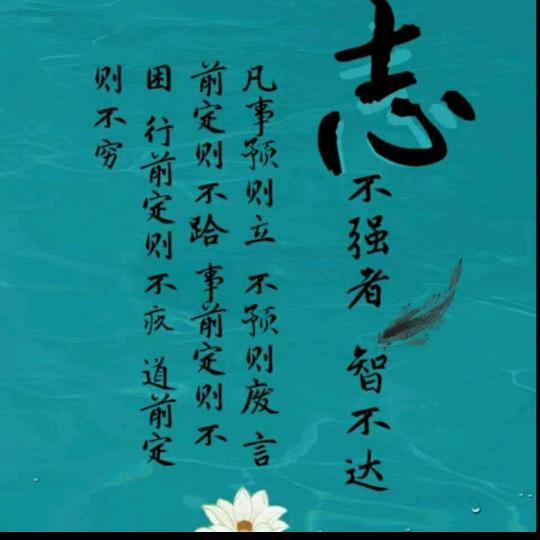 志不强者 智不达
凡事预则立 不预则废 言
前定则不跲 事前定则不
困 行前定则不疚 道前定
则不穷